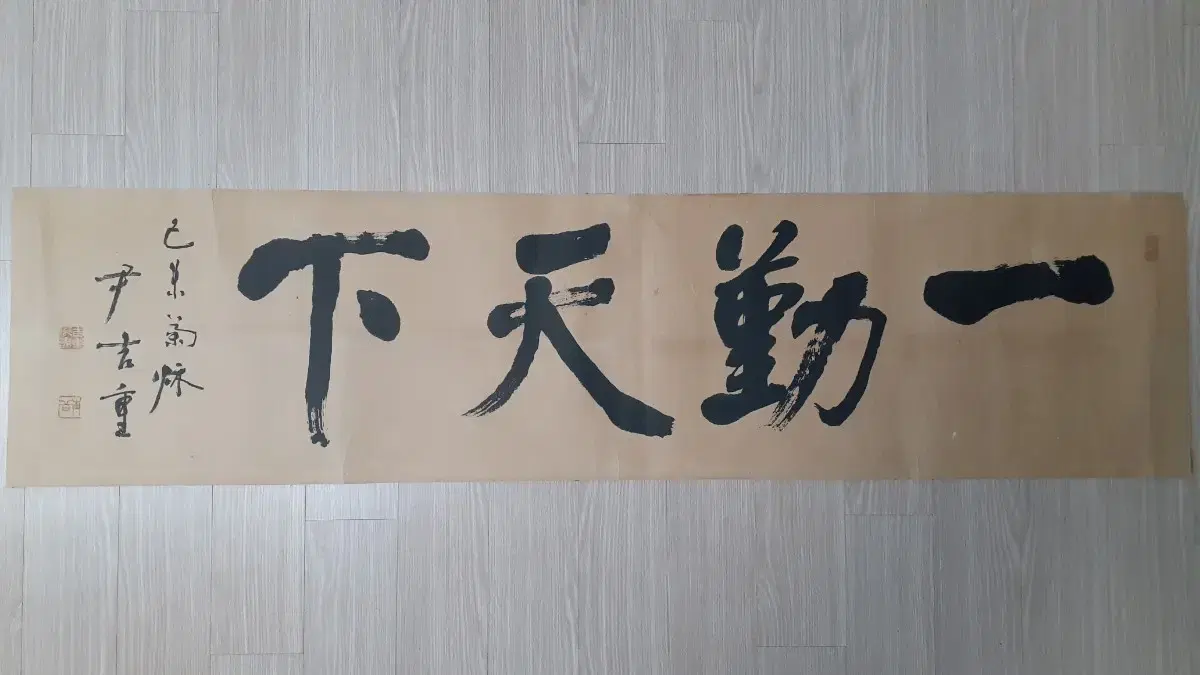 一勤天下
己未菊秋
尹吉重